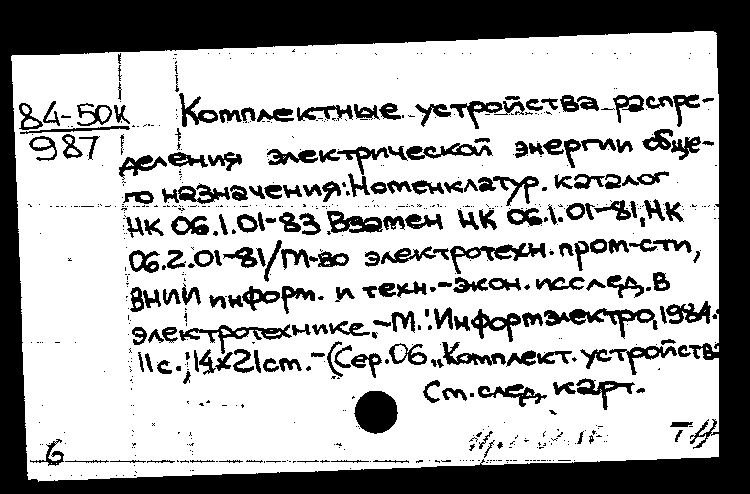 84-50к
987
Комплектные устройства распре-
деления электрической энергии обще-
го назначения: Номенклатур. каталог
НК 06.1.01-83 Взамен НК 06.1.01-81, НК
06.2.01-81/М-во электротехн. пром-сти,
ВНИИ информ. и техн.-экон. исслед. в
электротехнике.-М.: Информэлектро, 1984.-
11с.; 14×21см.-(Сер. 06 „Комплект. устройства
См. след. карт.
6